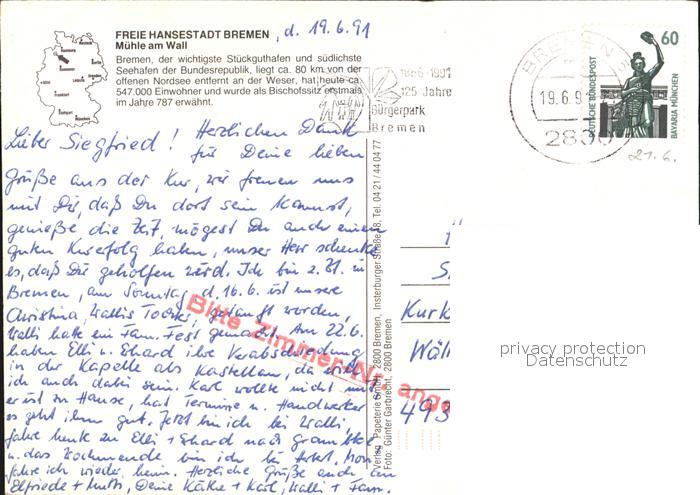 FREIE HANSESTADT BREMEN, d. 19.6.91
Mühle am Wall
Bremen, der wichtigste Stückguthafen und südlichste
Seehafen der Bundesrepublik, liegt ca. 80 km von der
offenen Nordsee entfernt an der Weser, hat heute ca.
547.000 Einwohner und wurde als Bischofssitz erstmals
im Jahre 787 erwähnt.
1866-1991
125 Jahre
Bürgerpark
Bremen
BREMEN 5
19.6.9
2800
60
DEUTSCHE BUNDESPOST
BAVARIA MÜNCHEN
21.6.
Lieber Siegfried! Herzlichen Dank
für Deine lieben
Grüße aus der Kur, wir freuen uns
mit Dir, daß Du dort sein kannst,
genieße die Zeit, mögest Du auch einen
guten Kurerfolg haben, unser Herr schenke
es, daß Dir geholfen wird. Ich bin z. Zt. in
Bremen, am Sonntag d. 16.6. ist unsere
Christina, Wallis Tochter, getauft worden,
Walli hatte ein Fam. Fest gemacht. Am 22.6.
haben Elli u. Erhard ihre Verabschiedung
in der Kapelle als Kastellan, da will
ich auch dabei sein. Karl wollte nicht mit
er ist zu Hause, hat Termine u. Handwerker
es geht ihm gut. Jetzt bin ich bei Walli,
fahre heute zu Elli + Erhard nach
u. das Wochenende bin ich bei
fahre ich wieder heim. Herzliche Grüße auch an
Elfriede + Mutti, Deine Käthe + Karl, Walli + Fam.
Bitte Zimmer-Nr. ange
Verlag: Papeterie GmbH, 2800 Bremen, Insterburger Straße 58, Tel. 04 21 / 44 04 77
Foto: Günter Garbrecht, 2800 Bremen
S
Kurk
Wäll
493
privacy protection
Datenschutz